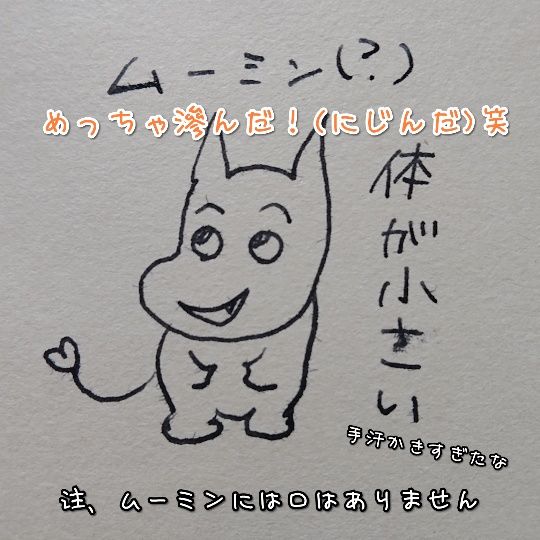 ムーミン(?)
めっちゃ滲んだ！(にじんだ)笑
体が小さい
手汗かきすぎたな
注、ムーミンには口はありません